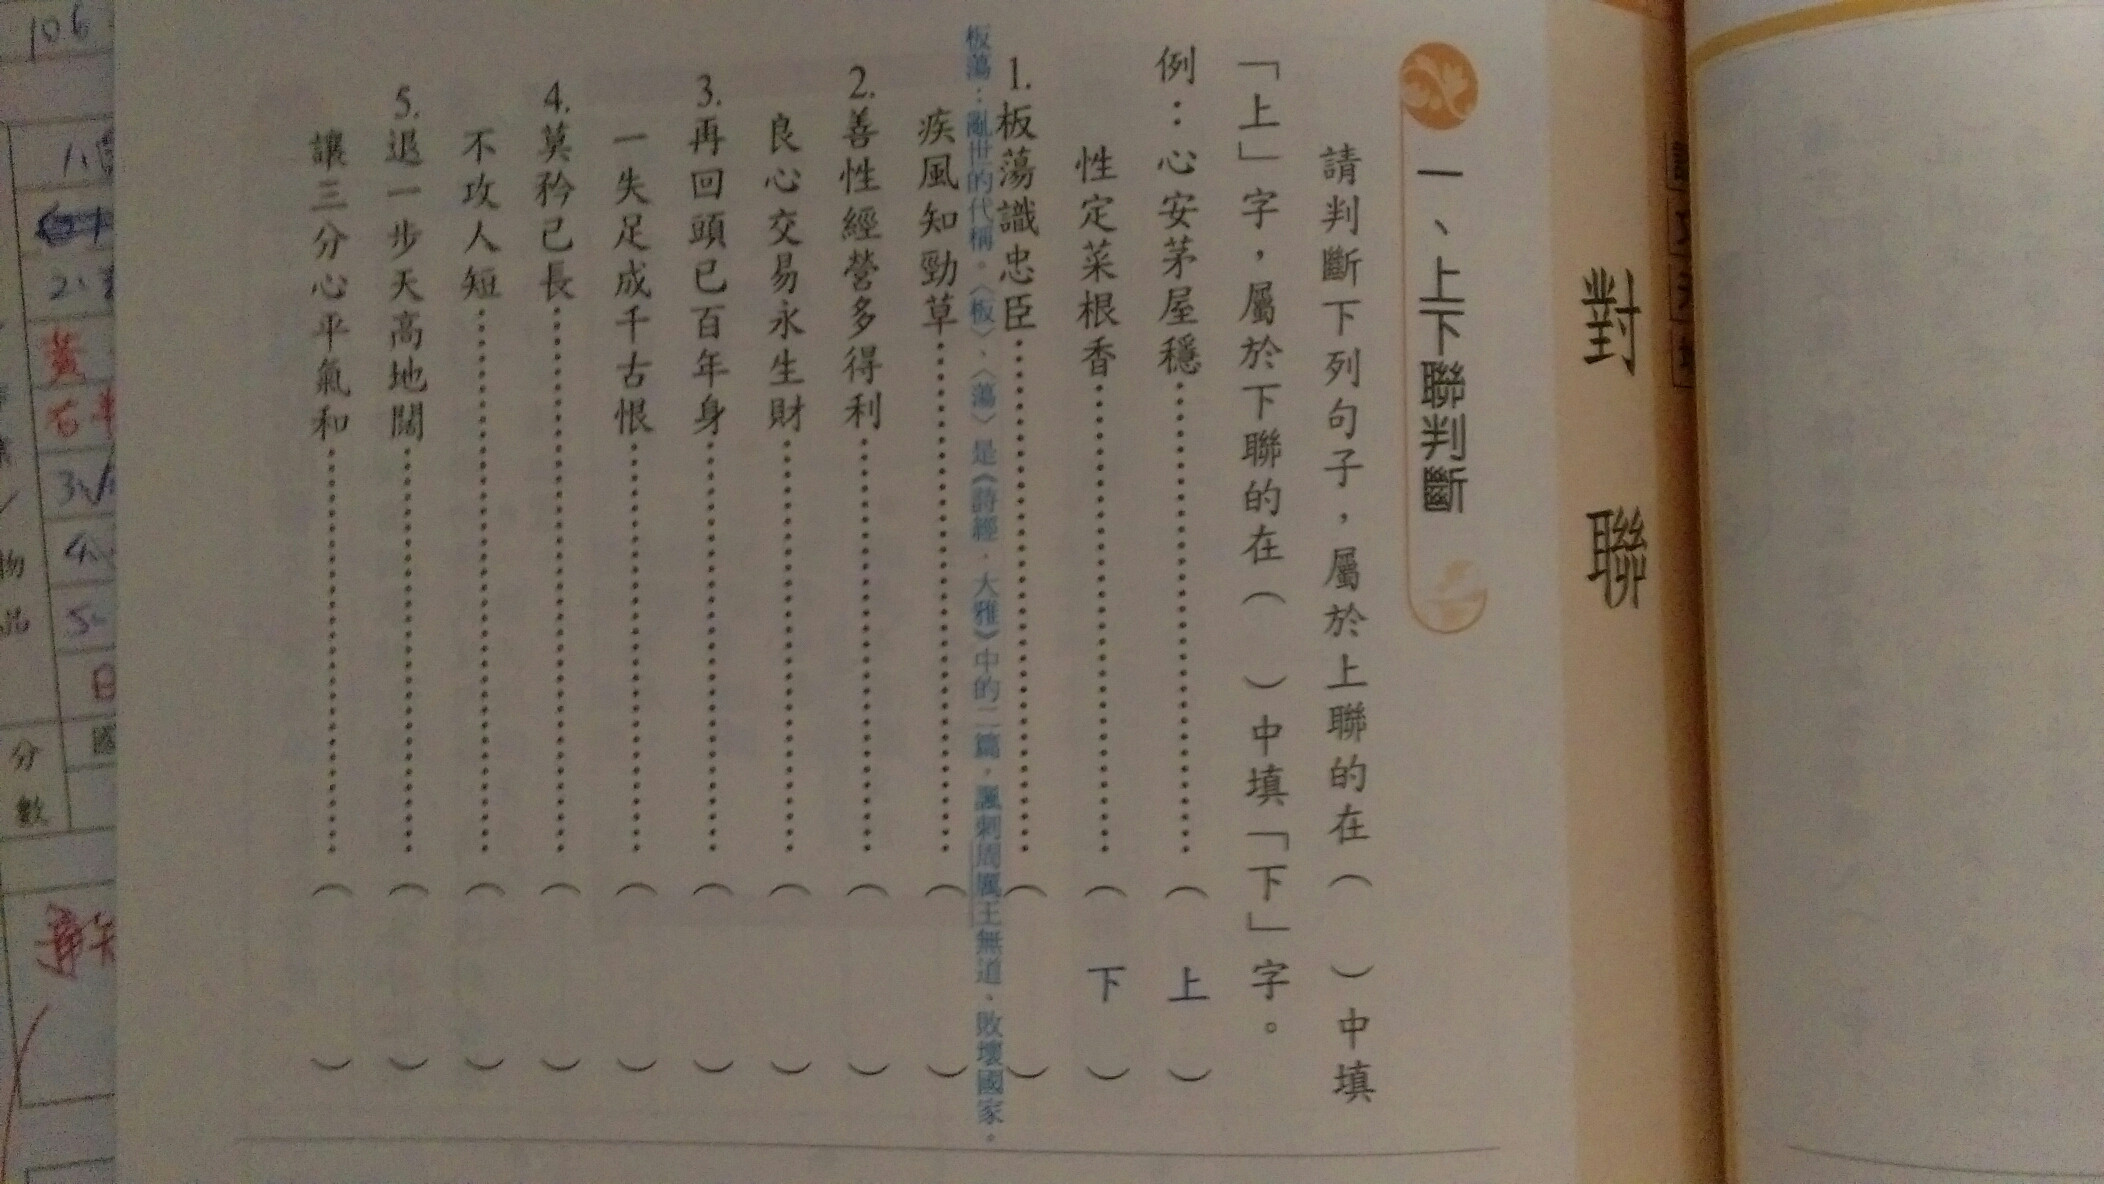 對聯
一、上下聯判斷
請判斷下列句子，屬於上聯的在（　）中填
「上」字，屬於下聯的在（　）中填「下」字。
例：心安茅屋穩……………………（　上　）
性定菜根香……………………（　下　）
1.板蕩識忠臣……………………（　　）
板蕩：亂世的代稱。〈板〉、〈蕩〉是《詩經．大雅》中的二篇，諷刺周厲王無道、敗壞國家。
疾風知勁草……………………（　　）
2.善性經營多得利……………………（　　）
良心交易永生財……………………（　　）
3.再回頭已百年身……………………（　　）
一失足成千古恨……………………（　　）
4.莫矜己長……………………（　　）
不攻人短……………………（　　）
5.退一步天高地闊……………………（　　）
讓三分心平氣和……………………（　　）
106
物品
分數
國